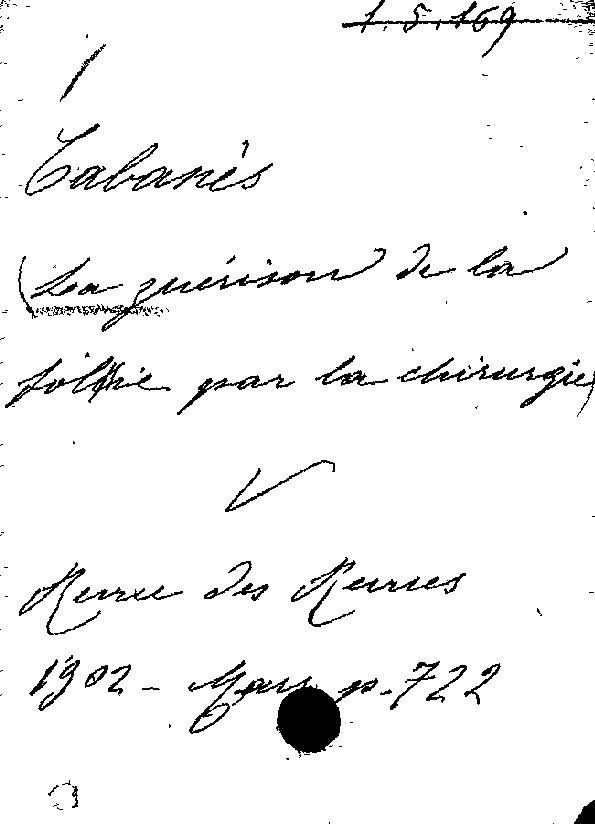 1.5.169
Cabanès
(La guérison de la
folie par la chirurgie)
Revue des Revues
1902 - Mars p. 722